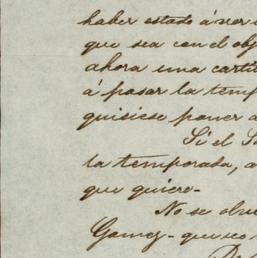 haber estado á ver
que sea con el obj
ahora una carti
á pasar la temp
quisiese poner a
Si el S
la temporada, a
que quiero-
No se olvi
Gamez- que so